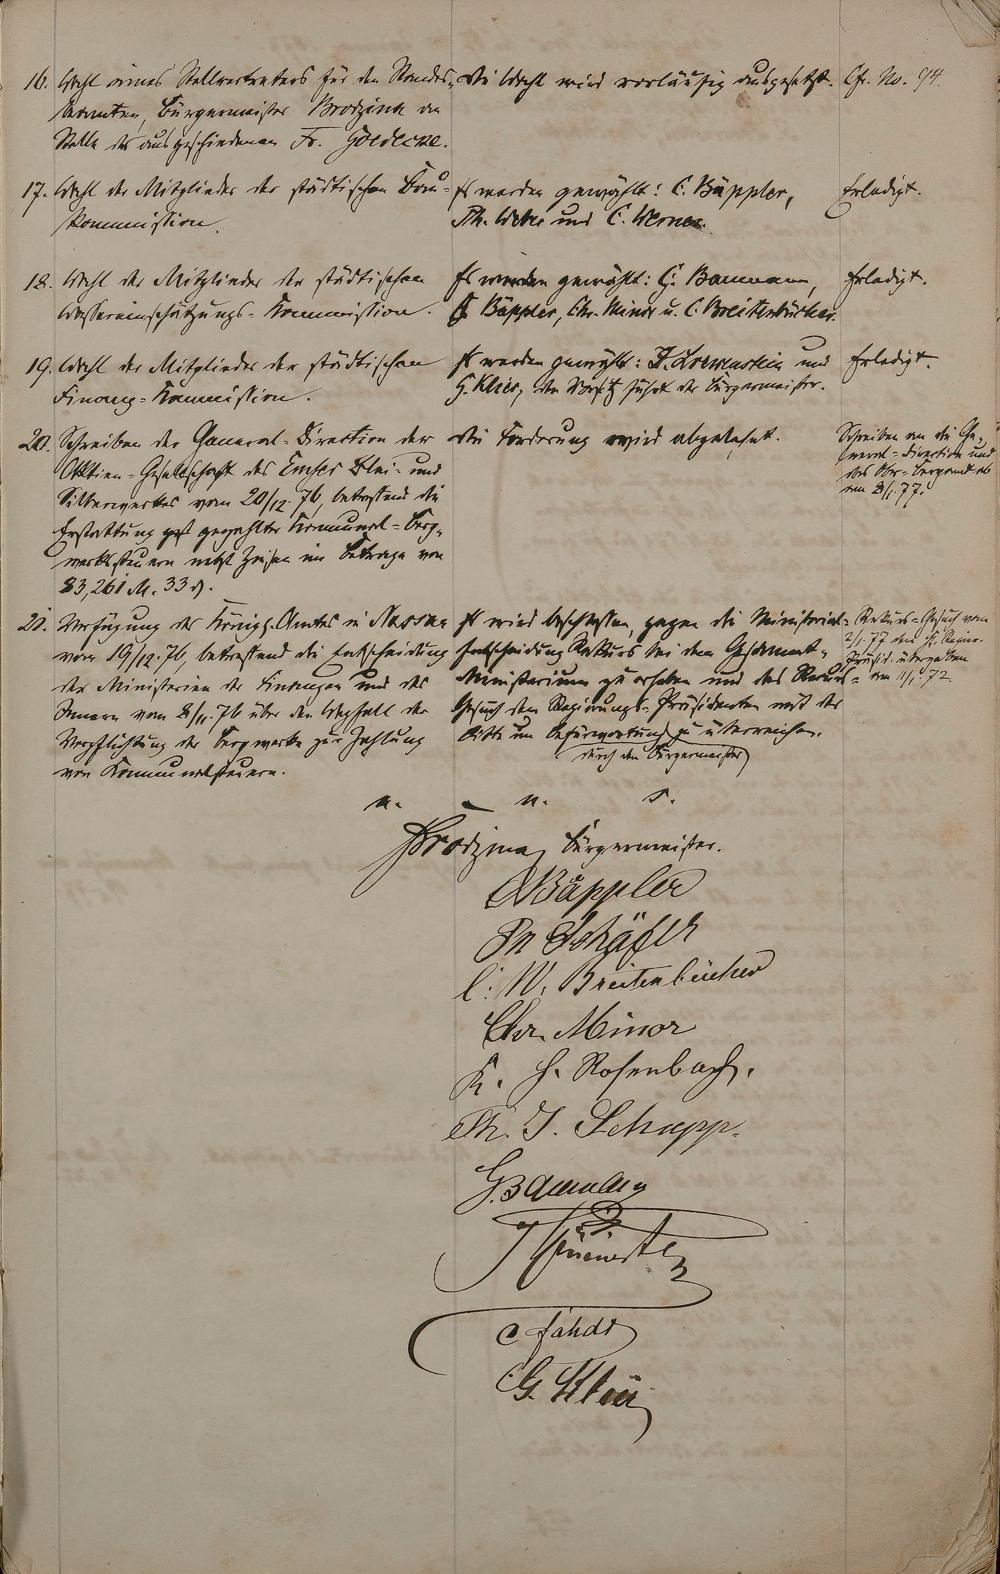 16. Wahl eines Stellvertreters für den Standes-
beamten, Bürgermeister Brodzina an
Stelle des ausgeschiedenen Fr. Goedecke.
Die Wahl wird vorläufig ausgesetzt.
Cf. No. 94.
17. Wahl der Mitglieder der städtischen Bau-
Kommission.
Es werden gewählt: C. Bäppler,
Th. Weber und C. Werner.
Erledigt.
18. Wahl der Mitglieder der städtischen
Wassereinschätzungs-Kommission.
Es werden gewählt: G. Baumann,
C. Bäppler, Chr. Minor u. C. Breitenbücher.
Erledigt.
19. Wahl der Mitglieder der städtischen
Finanz-Kommission.
Es werden gewählt: J. Loewenstein und
G. Klier, den Vorsitz führt der Bürgermeister.
Erledigt.
20. Schreiben der General-Direktion der
Aktien-Gesellschaft des Emser Blei- und
Silberwerkes vom 20/12. 76, betreffend die
Erstattung gezahlter Kommunal-Berg-
werkssteuern nebst Zinsen im Betrage von
83,261 M. 33 d.
Die Forderung wird abgelehnt.
Schreiben an die Ge-
neral-Direktion und
das Ober-Bergamt ab
am 8/1. 77.
21. Verfügung des Königl. Amtes in Nassau
vom 19/12. 76, betreffend die Entscheidung
der Ministerien der Finanzen und des
Innern vom 8/11. 76 über den Wegfall der
Verpflichtung der Bergwerke zur Zahlung
von Kommunalsteuern.
Es wird beschlossen, gegen die Ministerial-
Entscheidung Rekurs bei dem Gesammt-
Ministerium zu erheben und das Rekurs-
Gesuch dem Regierungs-Präsidenten mit der
Bitte um Befürwortung zu überreichen.
durch den Bürgermeister
Rekurs-Gesuch vom
2/1. 77 dem H. Regier.
Präsid. übergeben
am 11/1. 77.
v. g. u. s.
Brodzina, Bürgermeister.
C Bäppler
Ph Schäfer
C. W. Breitenbücher
Chr. Minor
K. H. Rosenbach.
Th. J. Schupp.
G. Baumann
C Fahdt
G. Klier